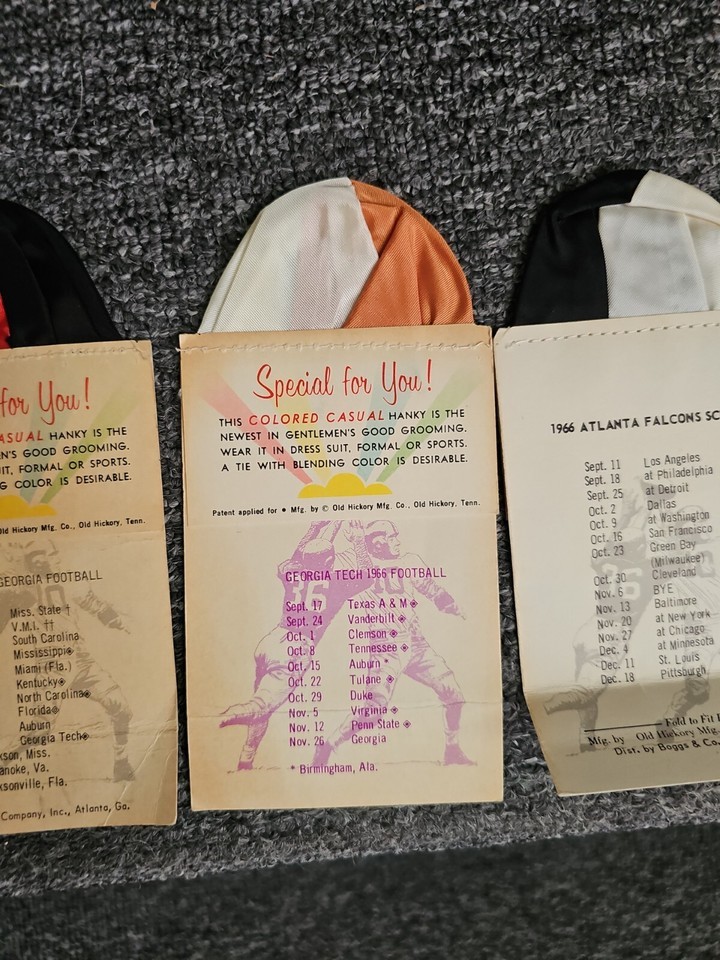 for You!
ASUAL HANKY IS THE
N'S GOOD GROOMING.
IT, FORMAL OR SPORTS.
G COLOR IS DESIRABLE.
Old Hickory Mfg. Co., Old Hickory, Tenn.
GEORGIA FOOTBALL
Miss. State †
V.M.I. ††
South Carolina
Mississippi◈
Miami (Fla.)
Kentucky◈
North Carolina◈
Florida◈
Auburn
Georgia Tech◈
kson, Miss.
anoke, Va.
ksonville, Fla.
Company, Inc., Atlanta, Ga.
Special for You!
THIS COLORED CASUAL HANKY IS THE
NEWEST IN GENTLEMEN'S GOOD GROOMING.
WEAR IT IN DRESS SUIT, FORMAL OR SPORTS.
A TIE WITH BLENDING COLOR IS DESIRABLE.
Patent applied for • Mfg. by © Old Hickory Mfg. Co., Old Hickory, Tenn.
GEORGIA TECH 1966 FOOTBALL
Sept. 17 Texas A & M◈
Sept. 24 Vanderbilt◈
Oct. 1 Clemson◈
Oct. 8 Tennessee◈
Oct. 15 Auburn *
Oct. 22 Tulane◈
Oct. 29 Duke
Nov. 5 Virginia◈
Nov. 12 Penn State◈
Nov. 26 Georgia
* Birmingham, Ala.
1966 ATLANTA FALCONS SC
Sept. 11 Los Angeles
Sept. 18 at Philadelphia
Sept. 25 at Detroit
Oct. 2 Dallas
Oct. 9 at Washington
Oct. 16 San Francisco
Oct. 23 Green Bay
(Milwaukee)
Oct. 30 Cleveland
Nov. 6 BYE
Nov. 13 Baltimore
Nov. 20 at New York
Nov. 27 at Chicago
Dec. 4 at Minnesota
Dec. 11 St. Louis
Dec. 18 Pittsburgh
Fold to Fit
Mfg. by Old Hickory Mfg.
Dist. by Boggs & Co.